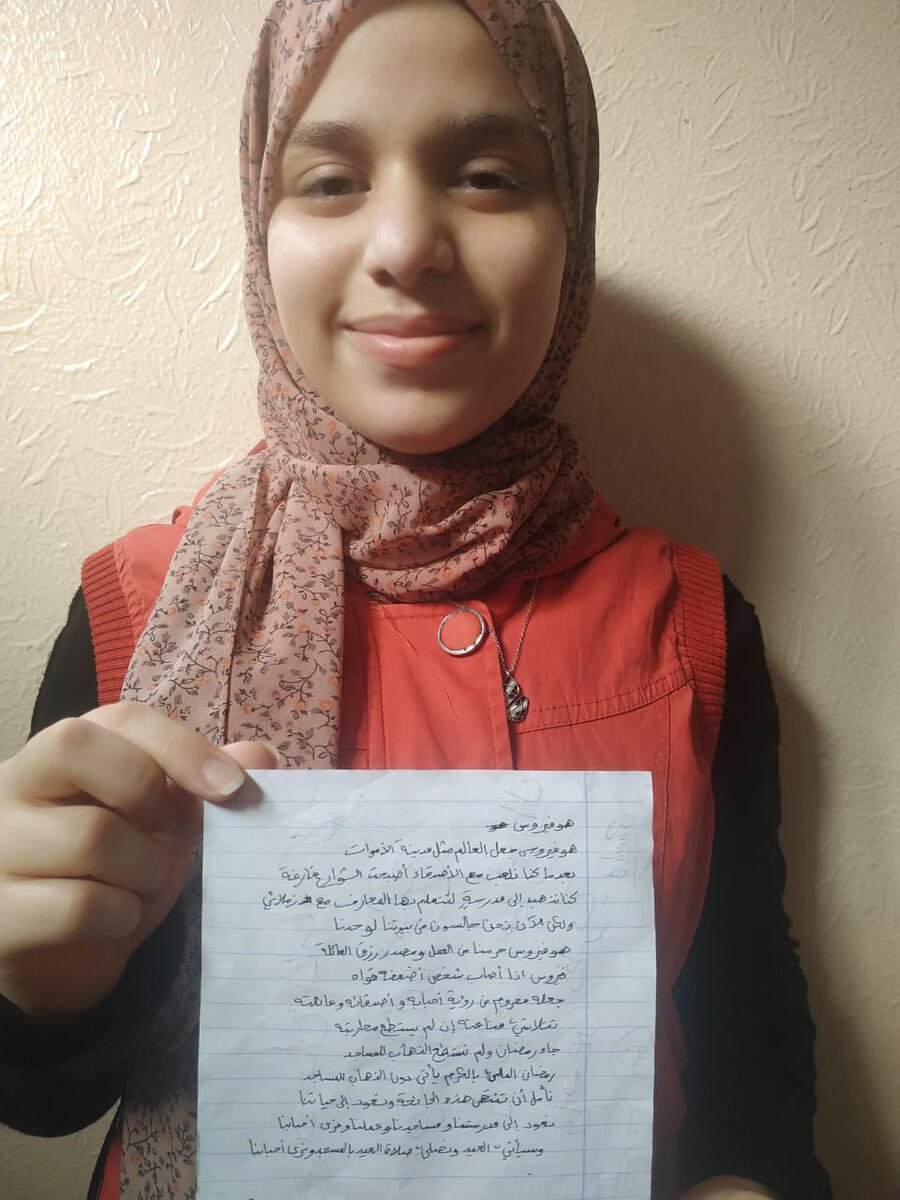 هو فيروس
هو فيروس جعل العالم مثل مدينة الأموات
بعدما كنا نلعب مع الأصدقاء أصبحت الشوارع فارغة
كنا نذهب إلى مدرسةٍ لنتعلم بها المعارف مع زملائي
ولكن الآن نحن جالسون في بيوتنا لوحدنا
هو فيروس حرمنا من العمل ومصدر رزق العائلة
فيروس اذا أصاب شخص أضعفه قواه
جعله محروم من رؤية أحبابه و أصدقائه وعائلته
تتلاشى مناعته إن لم يستطع محاربته
جاء رمضان ولم نستطع الذهاب للمساجد
رمضان المليء بالكرم يأتي دون الذهاب للمساجد
نأمل أن تنتهي هذه الجائحة ونعود إلى حياتنا
نعود إلى مدرستنا و مساجدنا وعملنا ونرى أحبابنا
وسيأتي العيد ونصلي صلاة العيد بالمسجد ونرى أحبابنا